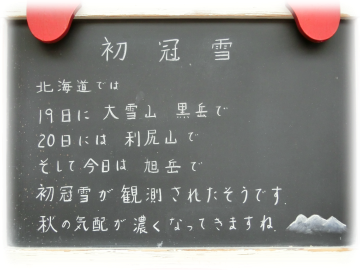 初冠雪
北海道では
19日に 大雪山 黒岳で
20日には 利尻山で
そして今日は 旭岳で
初冠雪が観測されたそうです.
秋の気配が濃くなってきますね.